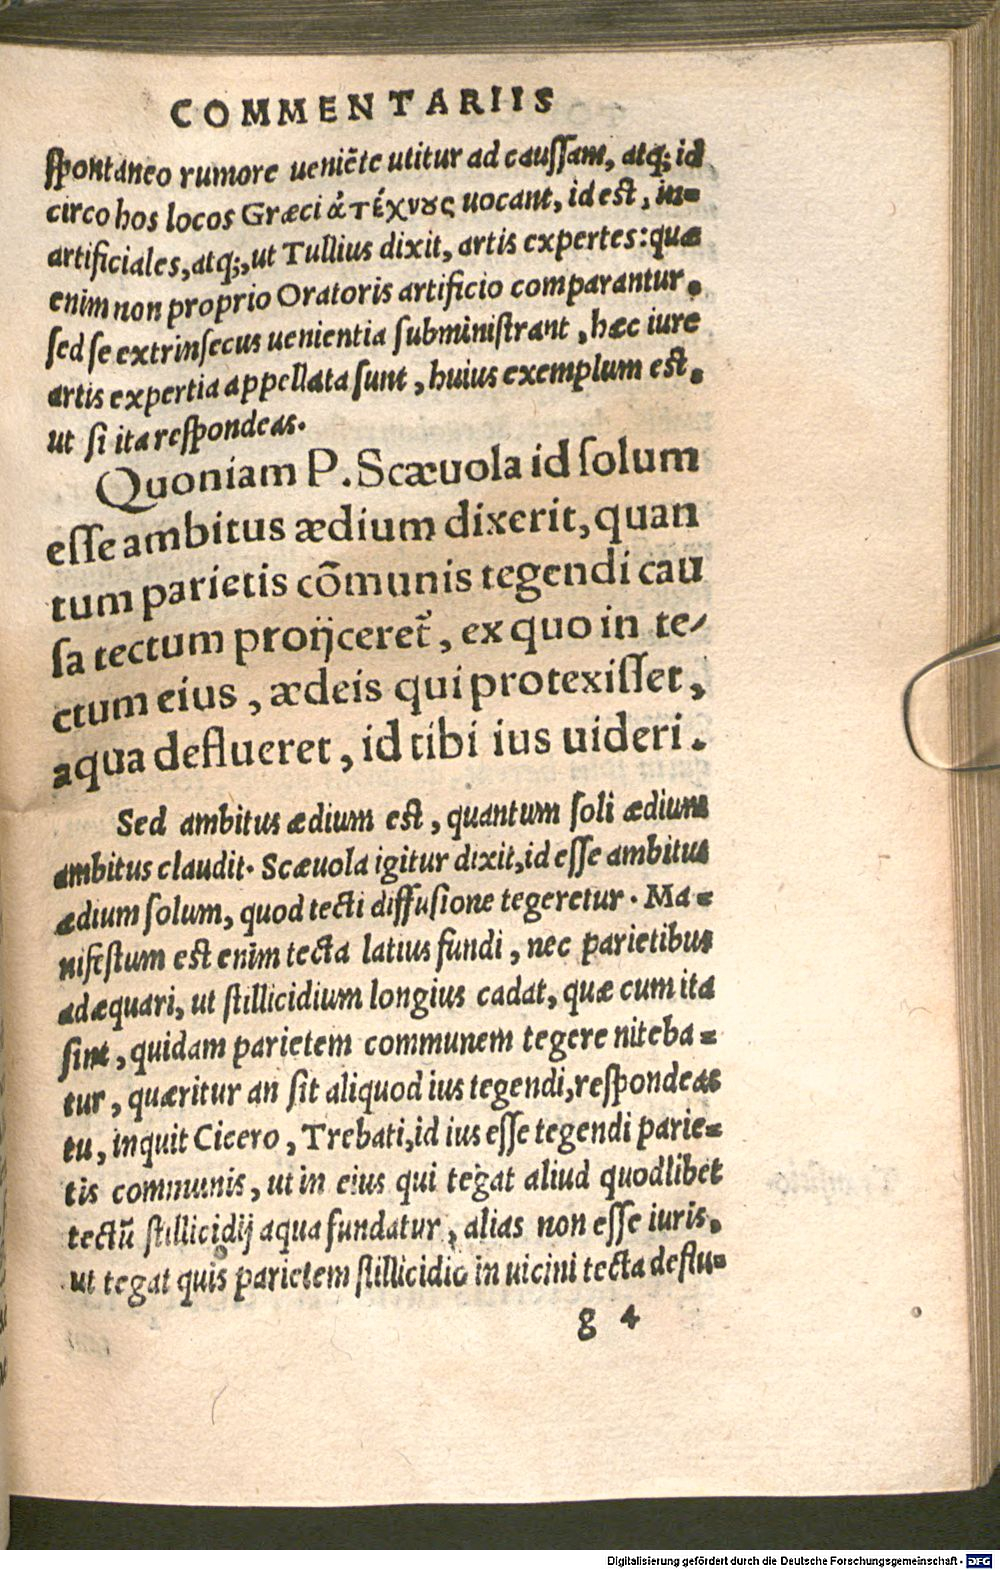 COMMENTARIIS
spontaneo rumore ueniẽte utitur ad caussam, atq; id
circo hos locos Græci ἀτέχνους uocant, id est, in=
artificiales, atq;, ut Tullius dixit, artis expertes: quæ
enim non proprio Oratoris artificio comparantur.
sed se extrinsecus uenientia subministrant, hæc iure
artis expertia appellata sunt, huius exemplum est.
ut si ita respondeas.
Quoniam P. Scæuola id solum
esse ambitus ædium dixerit, quan
tum parietis cõmunis tegendi cau
sa tectum proijceret̃, ex quo in te/
ctum eius, ædeis qui protexisset,
aqua deflueret, id tibi ius uideri.
Sed ambitus ædium est, quantum soli ædium
ambitus claudit. Scæuola igitur dixit, id esse ambitus
ædium solum, quod tecti diffusione tegeretur. Ma=
nifestum est enim tecta latius fundi, nec parietibus
adæquari, ut stillicidium longius cadat, quæ cum ita
sint, quidam parietem communem tegere niteba=
tur, quæritur an sit aliquod ius tegendi, respondeas
tu, inquit Cicero, Trebati, id ius esse tegendi parie=
tis communis, ut in eius qui tegat aliud quodlibet
tectũ stillicidij aqua fundatur, alias non esse iuris.
ut tegat quis parietem stillicidio in uicini tecta deflu=
g 4
Digitalisierung gefördert durch die Deutsche Forschungsgemeinschaft - DFG